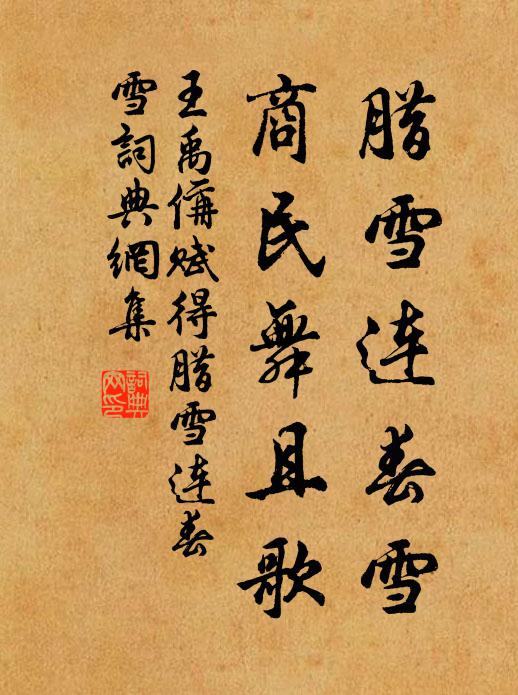 腊雪連春雪
商民舞且歌
王禹偁賦得腊雪連春
雪詞典網集
詞典
网印